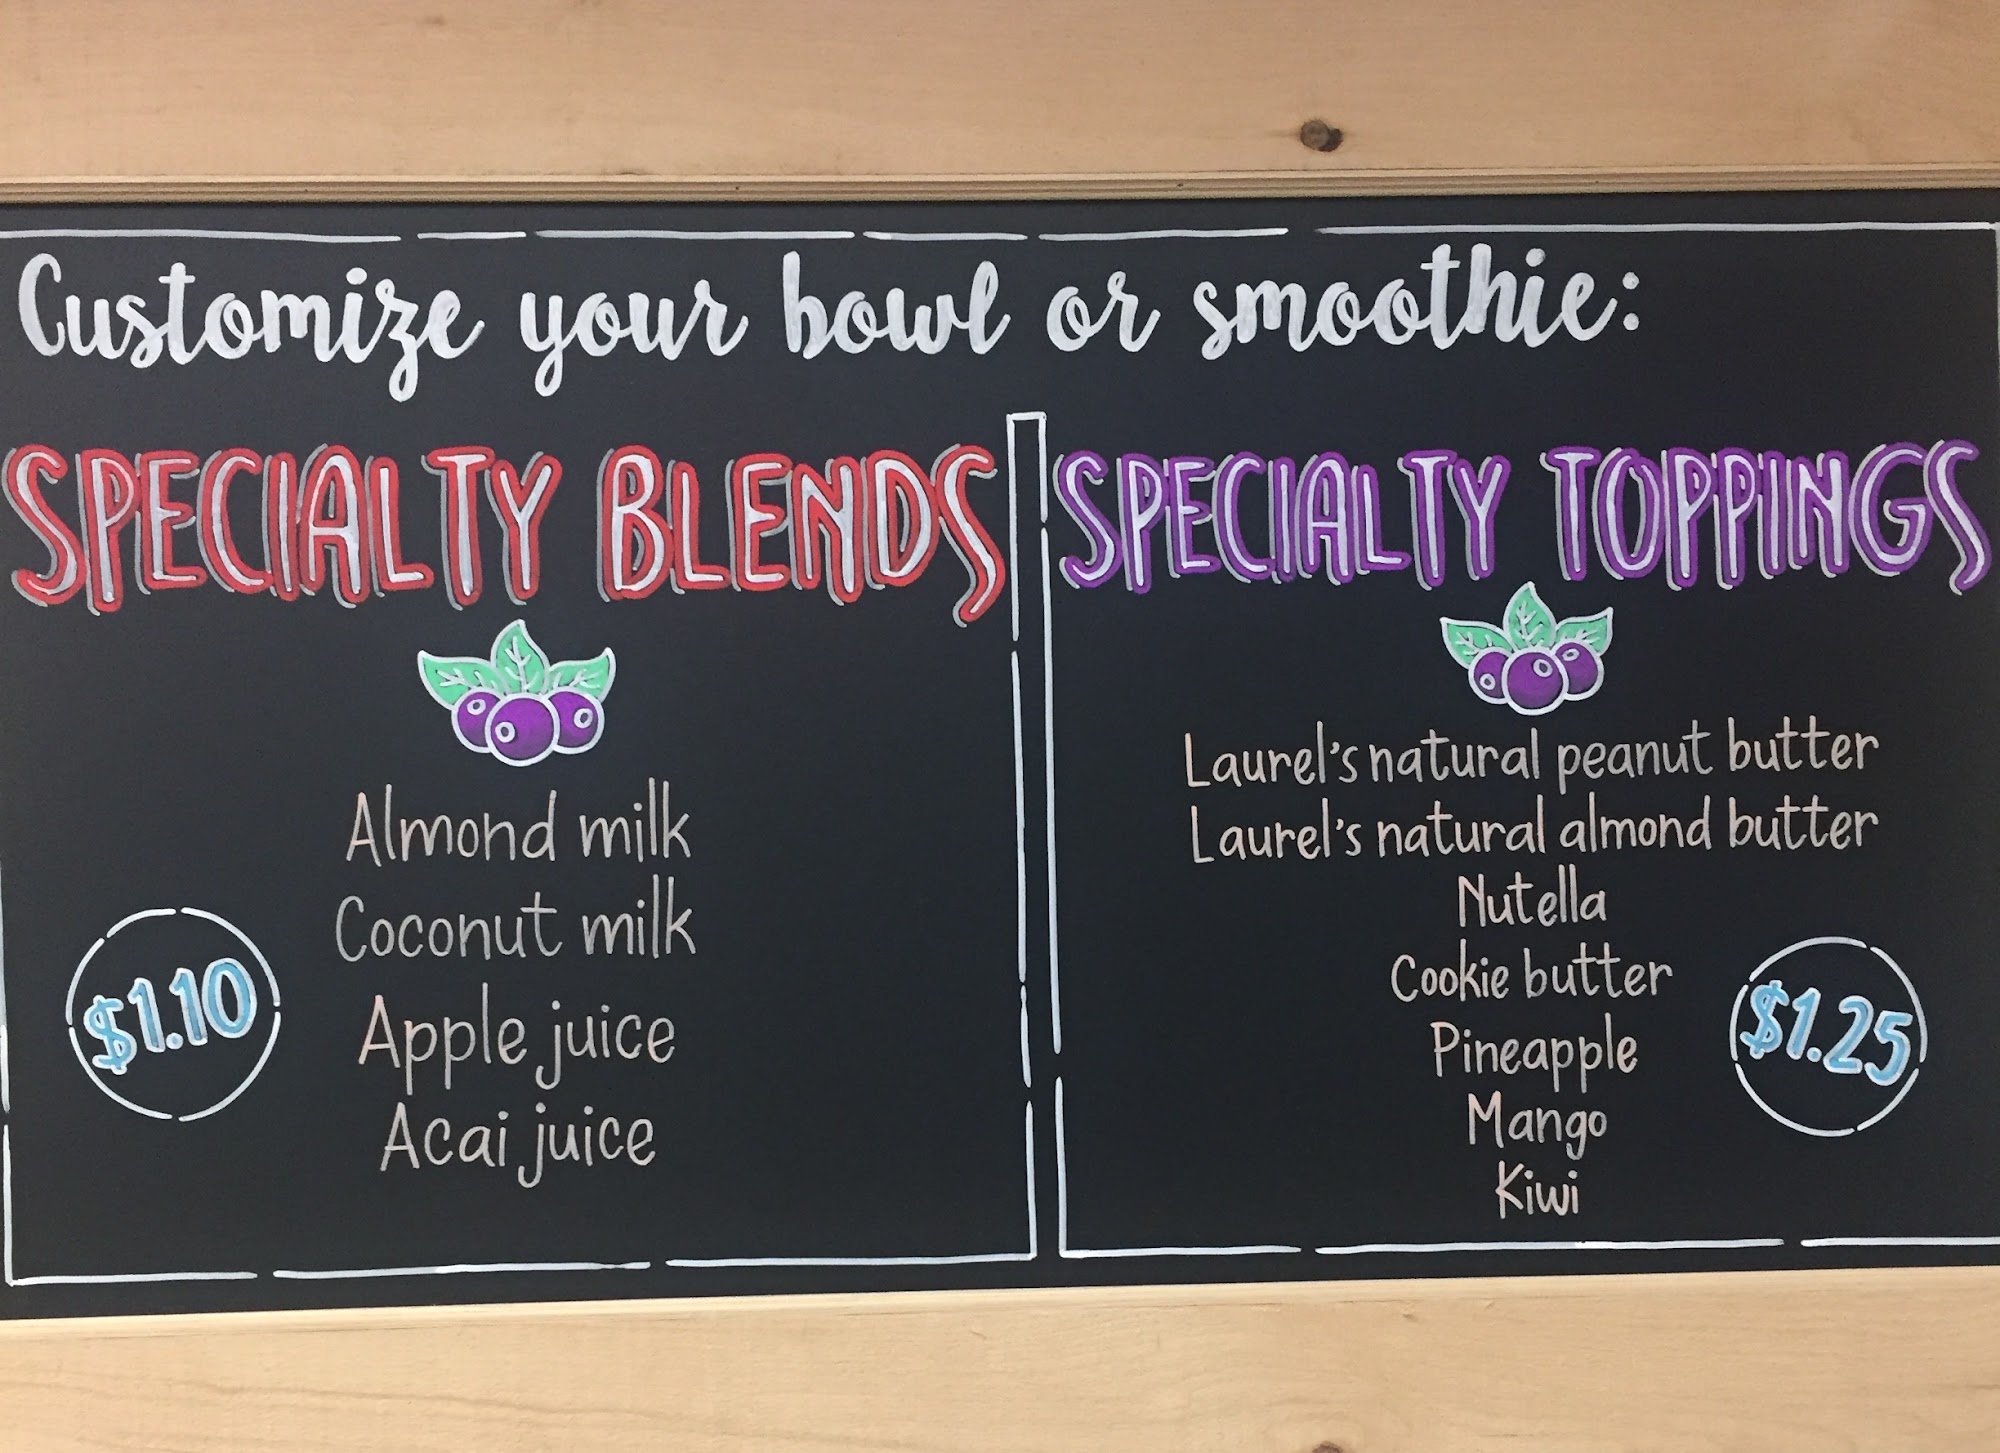 Customize your bowl or smoothie:
SPECIALTY BLENDS
Almond milk
Coconut milk
Apple juice
Acai juice
$1.10
SPECIALTY TOPPINGS
Laurel's natural peanut butter
Laurel's natural almond butter
Nutella
Cookie butter
Pineapple
Mango
Kiwi
$1.25